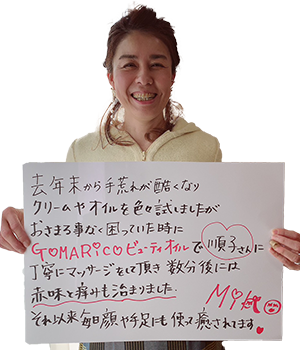 去年末から手荒れが酷くなり
クリームやオイルを色々試しましたが
おさまる事なく困っていた時に
GOMARICOビューティオイルで順子さんに
丁寧にマッサージをして頂き 数分後には
赤味と痒みも治まりました。
それ以来毎日顔や手足にも使って癒されてます